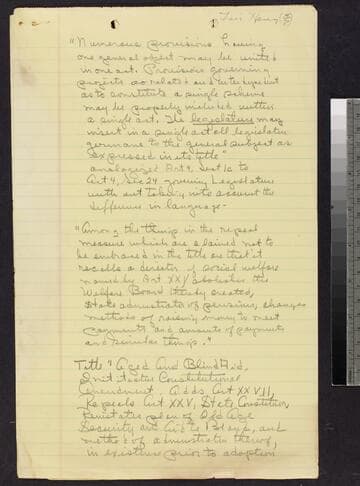 "Numerous provisions having
one general object may be united
in one act. Provisions governing
projects so related and interdependent
as to constitute a single scheme
may be properly included within
a single act. The legislature may
insert in a single act all legislation
germane to the general subject as
expressed in its title"
analogized Art 4, Sect 1c to
Art 4, Sec 24 governing Legislature
with out taking into account the
difference in language -
"Among the things in the repeal
measure which are claimed not to
be embraced in the title are that it
recalls a director of social welfare
named by Art XXV abolishes the
Welfare Board thereby created,
State administrator of pensions, changes
methods of raising money to meet
payments and amounts of payments
and similar things."
Title "Aged And Blind Aid.
Initiative Constitutional
Amendment. Adds Art XXVII,
Repeals Art XXV, State Constitution,
Reinstates plan of Old Age
Security and Aid to Blind, and
method of administration thereof,
in existence prior to adoption